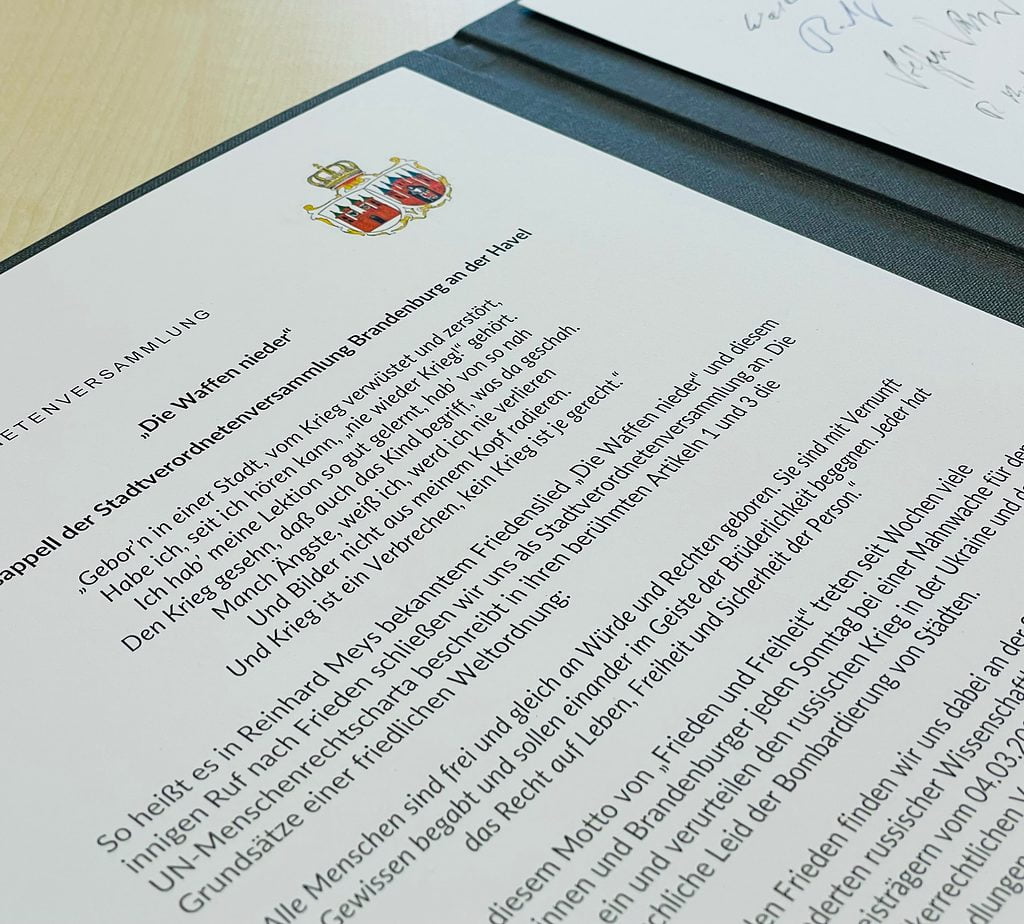 ETENVERSAMMLUNG
„Die Waffen nieder“
sappell der Stadtverordnetenversammlung Brandenburg an der Havel
„Gebor'n in einer Stadt, vom Krieg verwüstet und zerstört,
Habe ich, seit ich hören kann, „nie wieder Krieg!“ gehört.
Ich hab' meine Lektion so gut gelernt, hab' von so nah
Den Krieg gesehn, daß auch das Kind begriff, was da geschah.
Manch Ängste, weiß ich, werd ich nie verlieren
Und Bilder nicht aus meinem Kopf radieren.
Und Krieg ist ein Verbrechen, kein Krieg ist je gerecht.“
So heißt es in Reinhard Meys bekanntem Friedenslied „Die Waffen nieder“ und diesem
innigen Ruf nach Frieden schließen wir uns als Stadtverordnetenversammlung an. Die
UN-Menschenrechtscharta beschreibt in ihren berühmten Artikeln 1 und 3 die
Grundsätze einer friedlichen Weltordnung:
Alle Menschen sind frei und gleich an Würde und Rechten geboren. Sie sind mit Vernunft
Gewissen begabt und sollen einander im Geiste der Brüderlichkeit begegnen. Jeder hat
das Recht auf Leben, Freiheit und Sicherheit der Person.“
diesem Motto von „Frieden und Freiheit“ treten seit Wochen viele
innen und Brandenburger jeden Sonntag bei einer Mahnwache für den
ein und verurteilen den russischen Krieg in der Ukraine und d
chliche Leid der Bombardierung von Städten.
en Frieden finden wir uns dabei an der
derten russischer Wissenschaft
eisträgern vom 04.03.20
errechtlichen V
dlungen